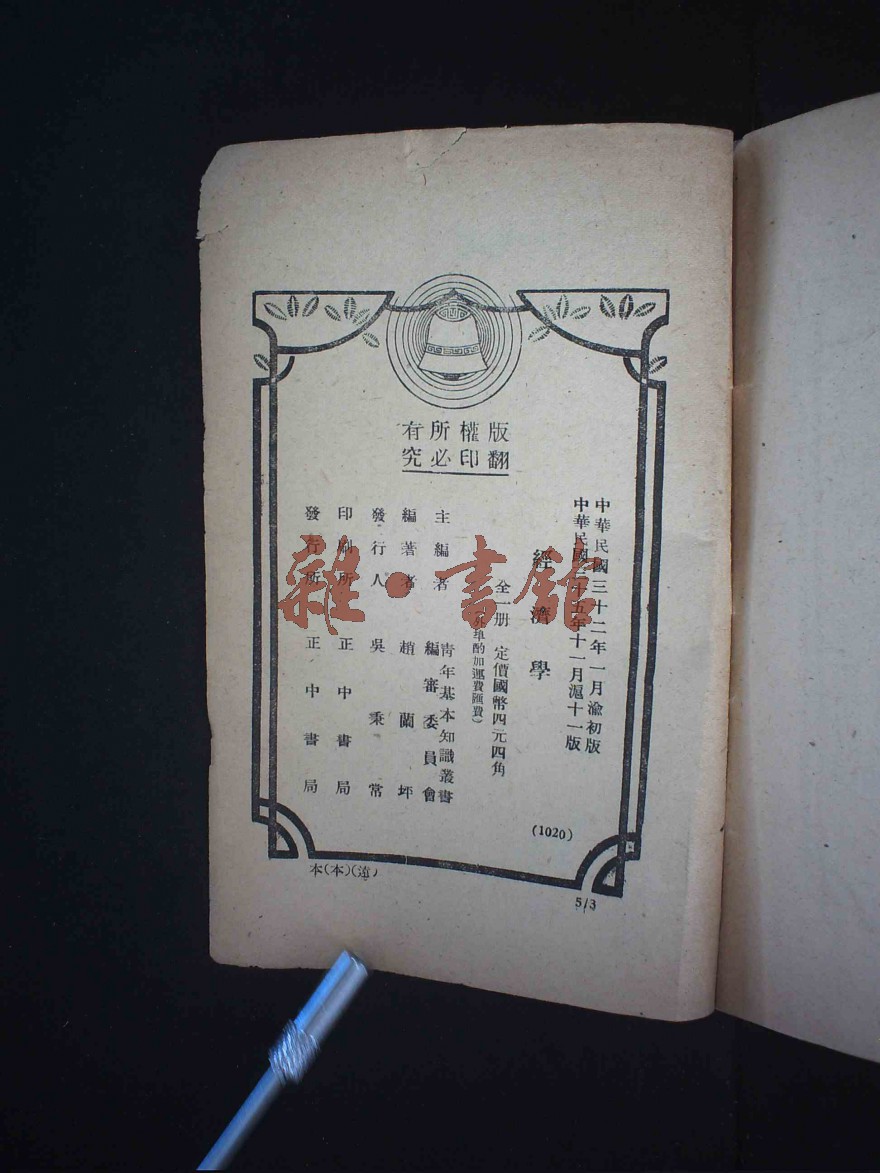 版權所有
翻印必究
中華民國三十二年一月渝初版
中華民國三十五年十一月滬十一版
經濟學
全一册 定價國幣四元四角
(外埠酌加運費匯費)
主編者 青年基本知識叢書
編審委員會
編著者 趙蘭坪
發行人 吳秉常
印刷所 正中書局
發行所 正中書局
(1020)
本(本)
5/3
雜·書館